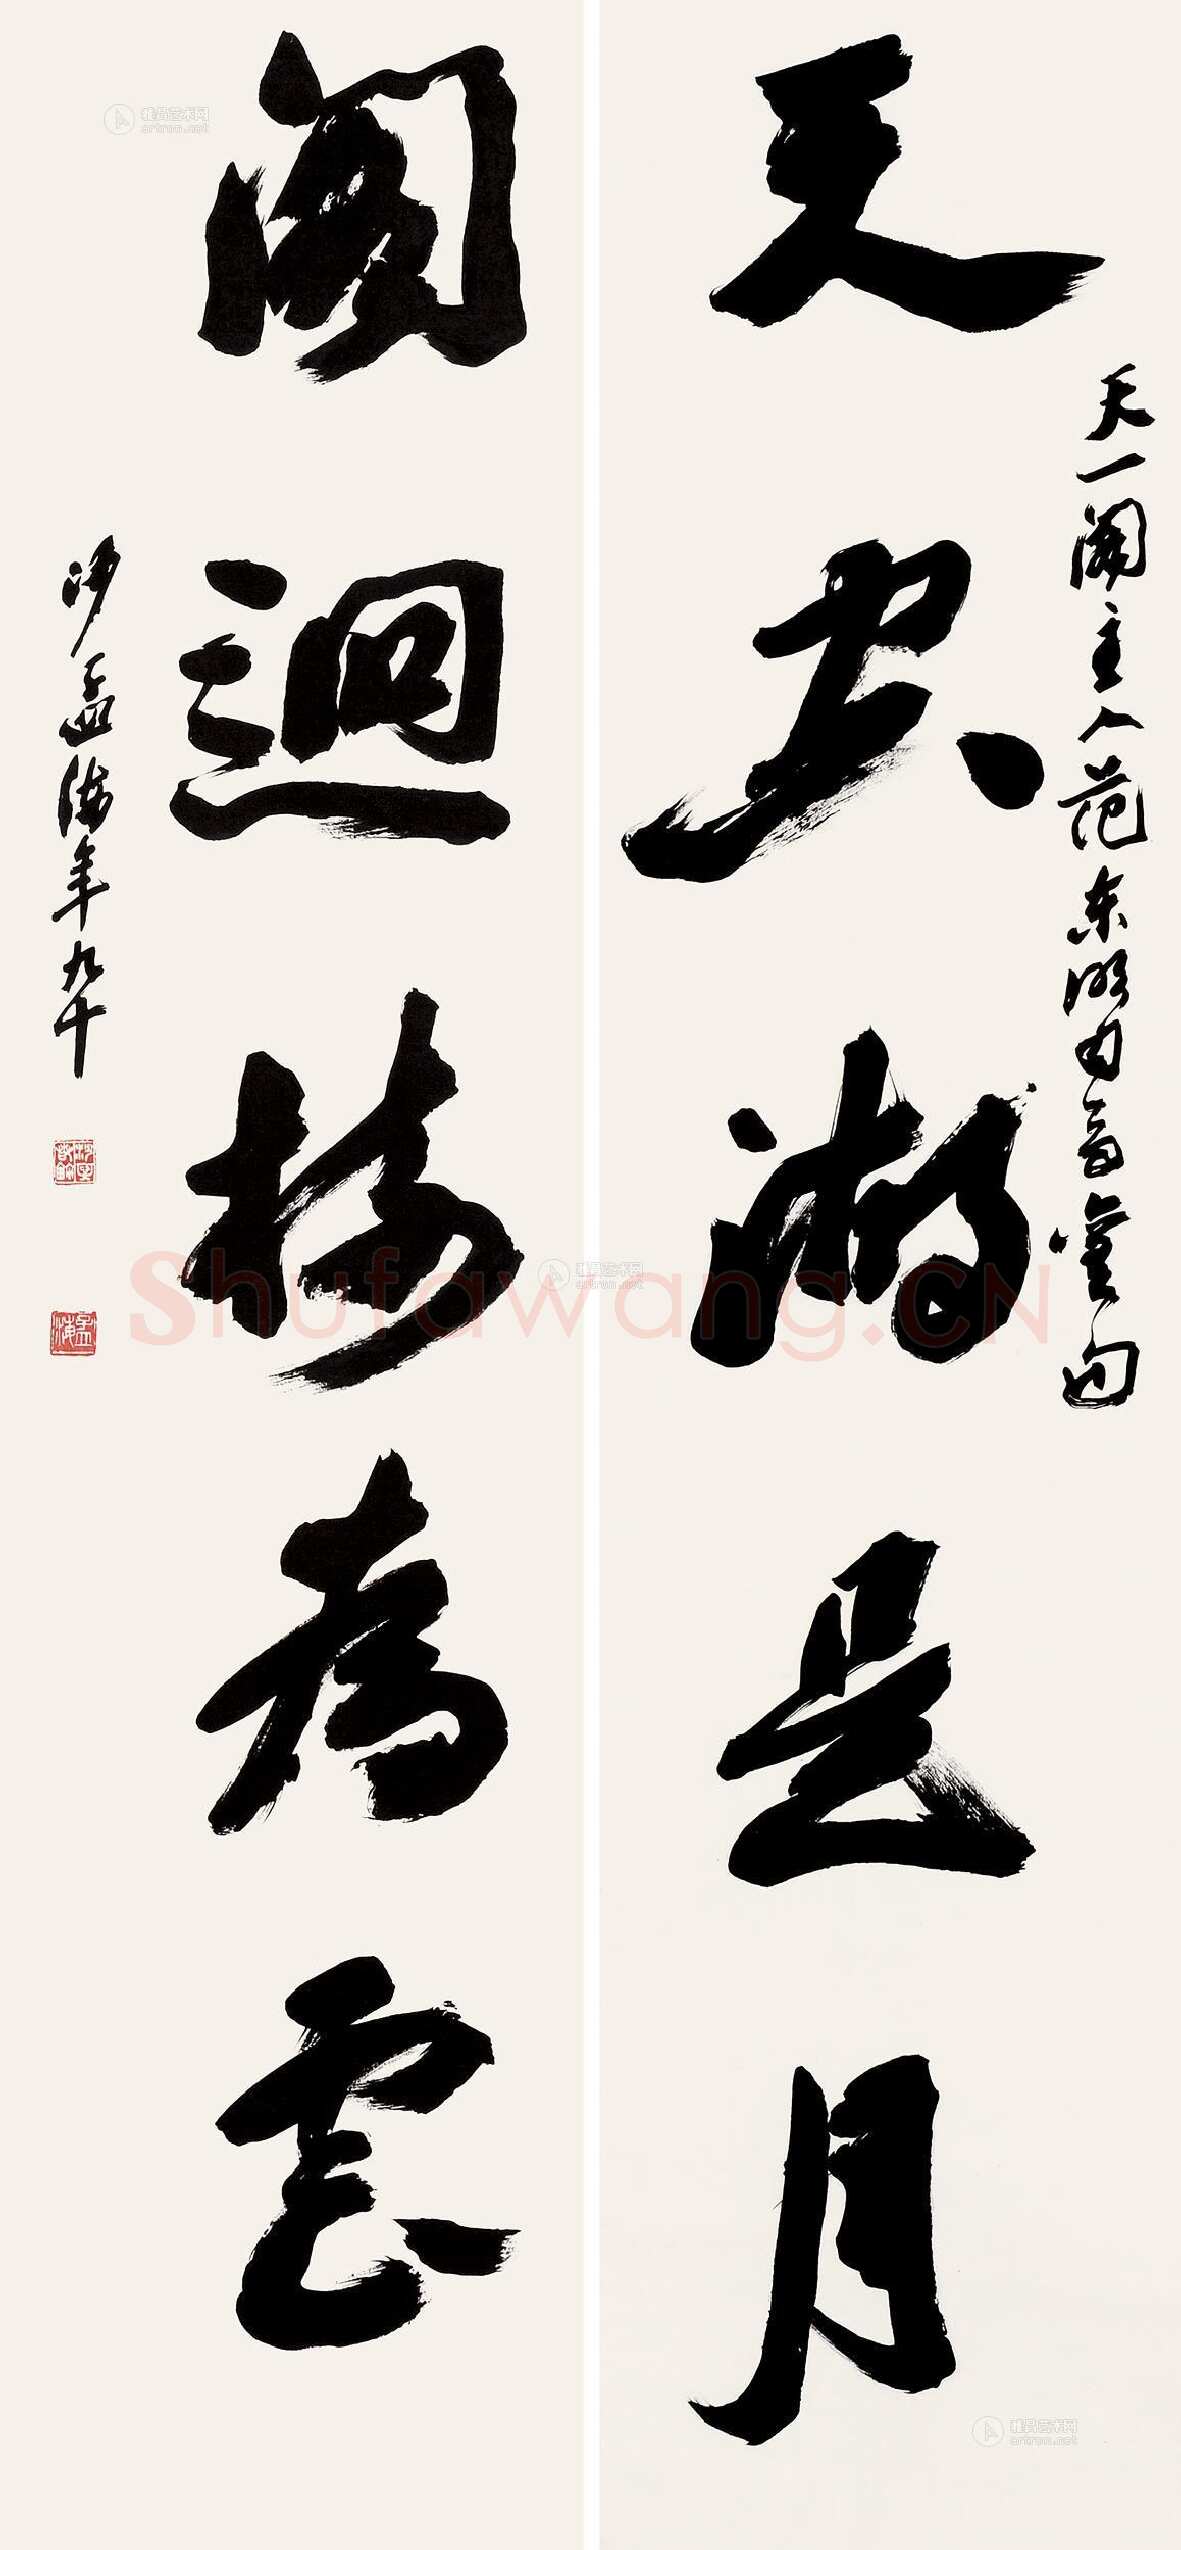 天尽湖是月
天一閣主人范東明句
閣迥樓為雲
沙孟海年九十
孟海
Shufawang.CN
雅昌艺术网
artron.net
雅昌艺术网
artron.net
雅昌艺术网
artron.net